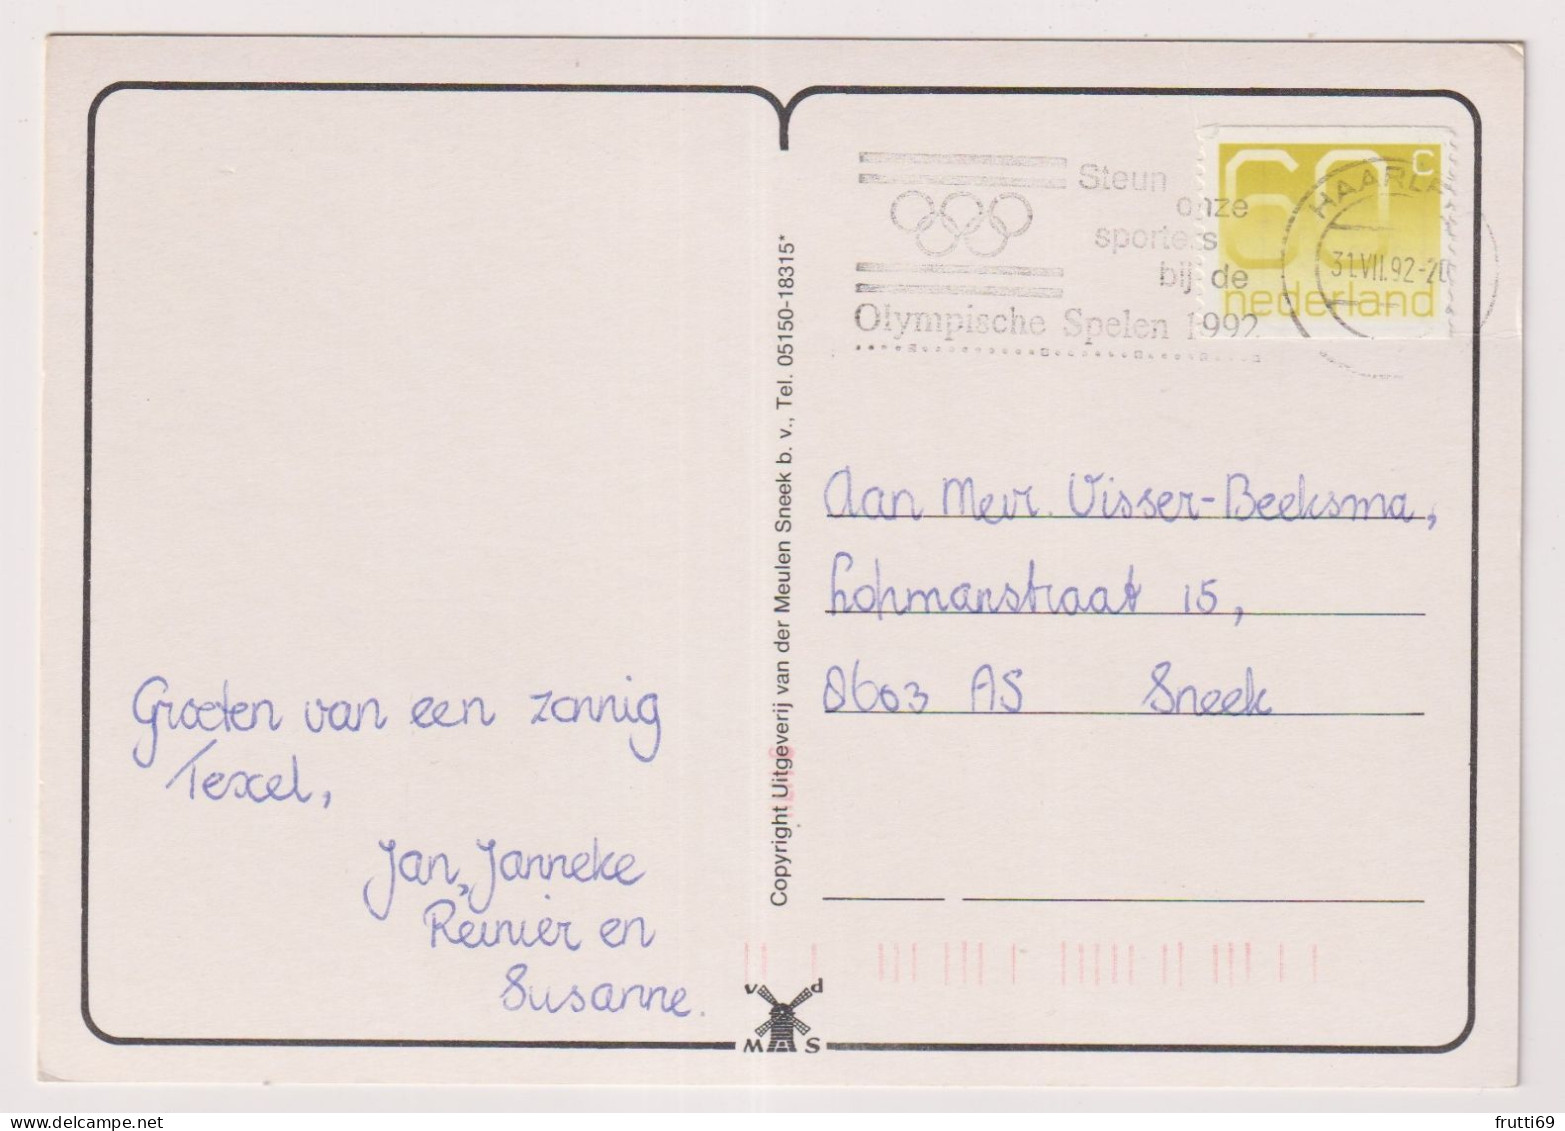 Groeten van een zonnig
Texel,
Jan, Janneke
Reinier en
Susanne.
Copyright Uitgeverij van der Meulen Sneek b. v., Tel. 05150-18315*
v d
M A S
Steun
onze
sporters
bij de
Olympische Spelen 1992
60 c
nederland
31.VII.92-20
Aan Mevr. Visser-Beeksma,
Lohmanstraat 15,
8603 AS Sneek
frutti69